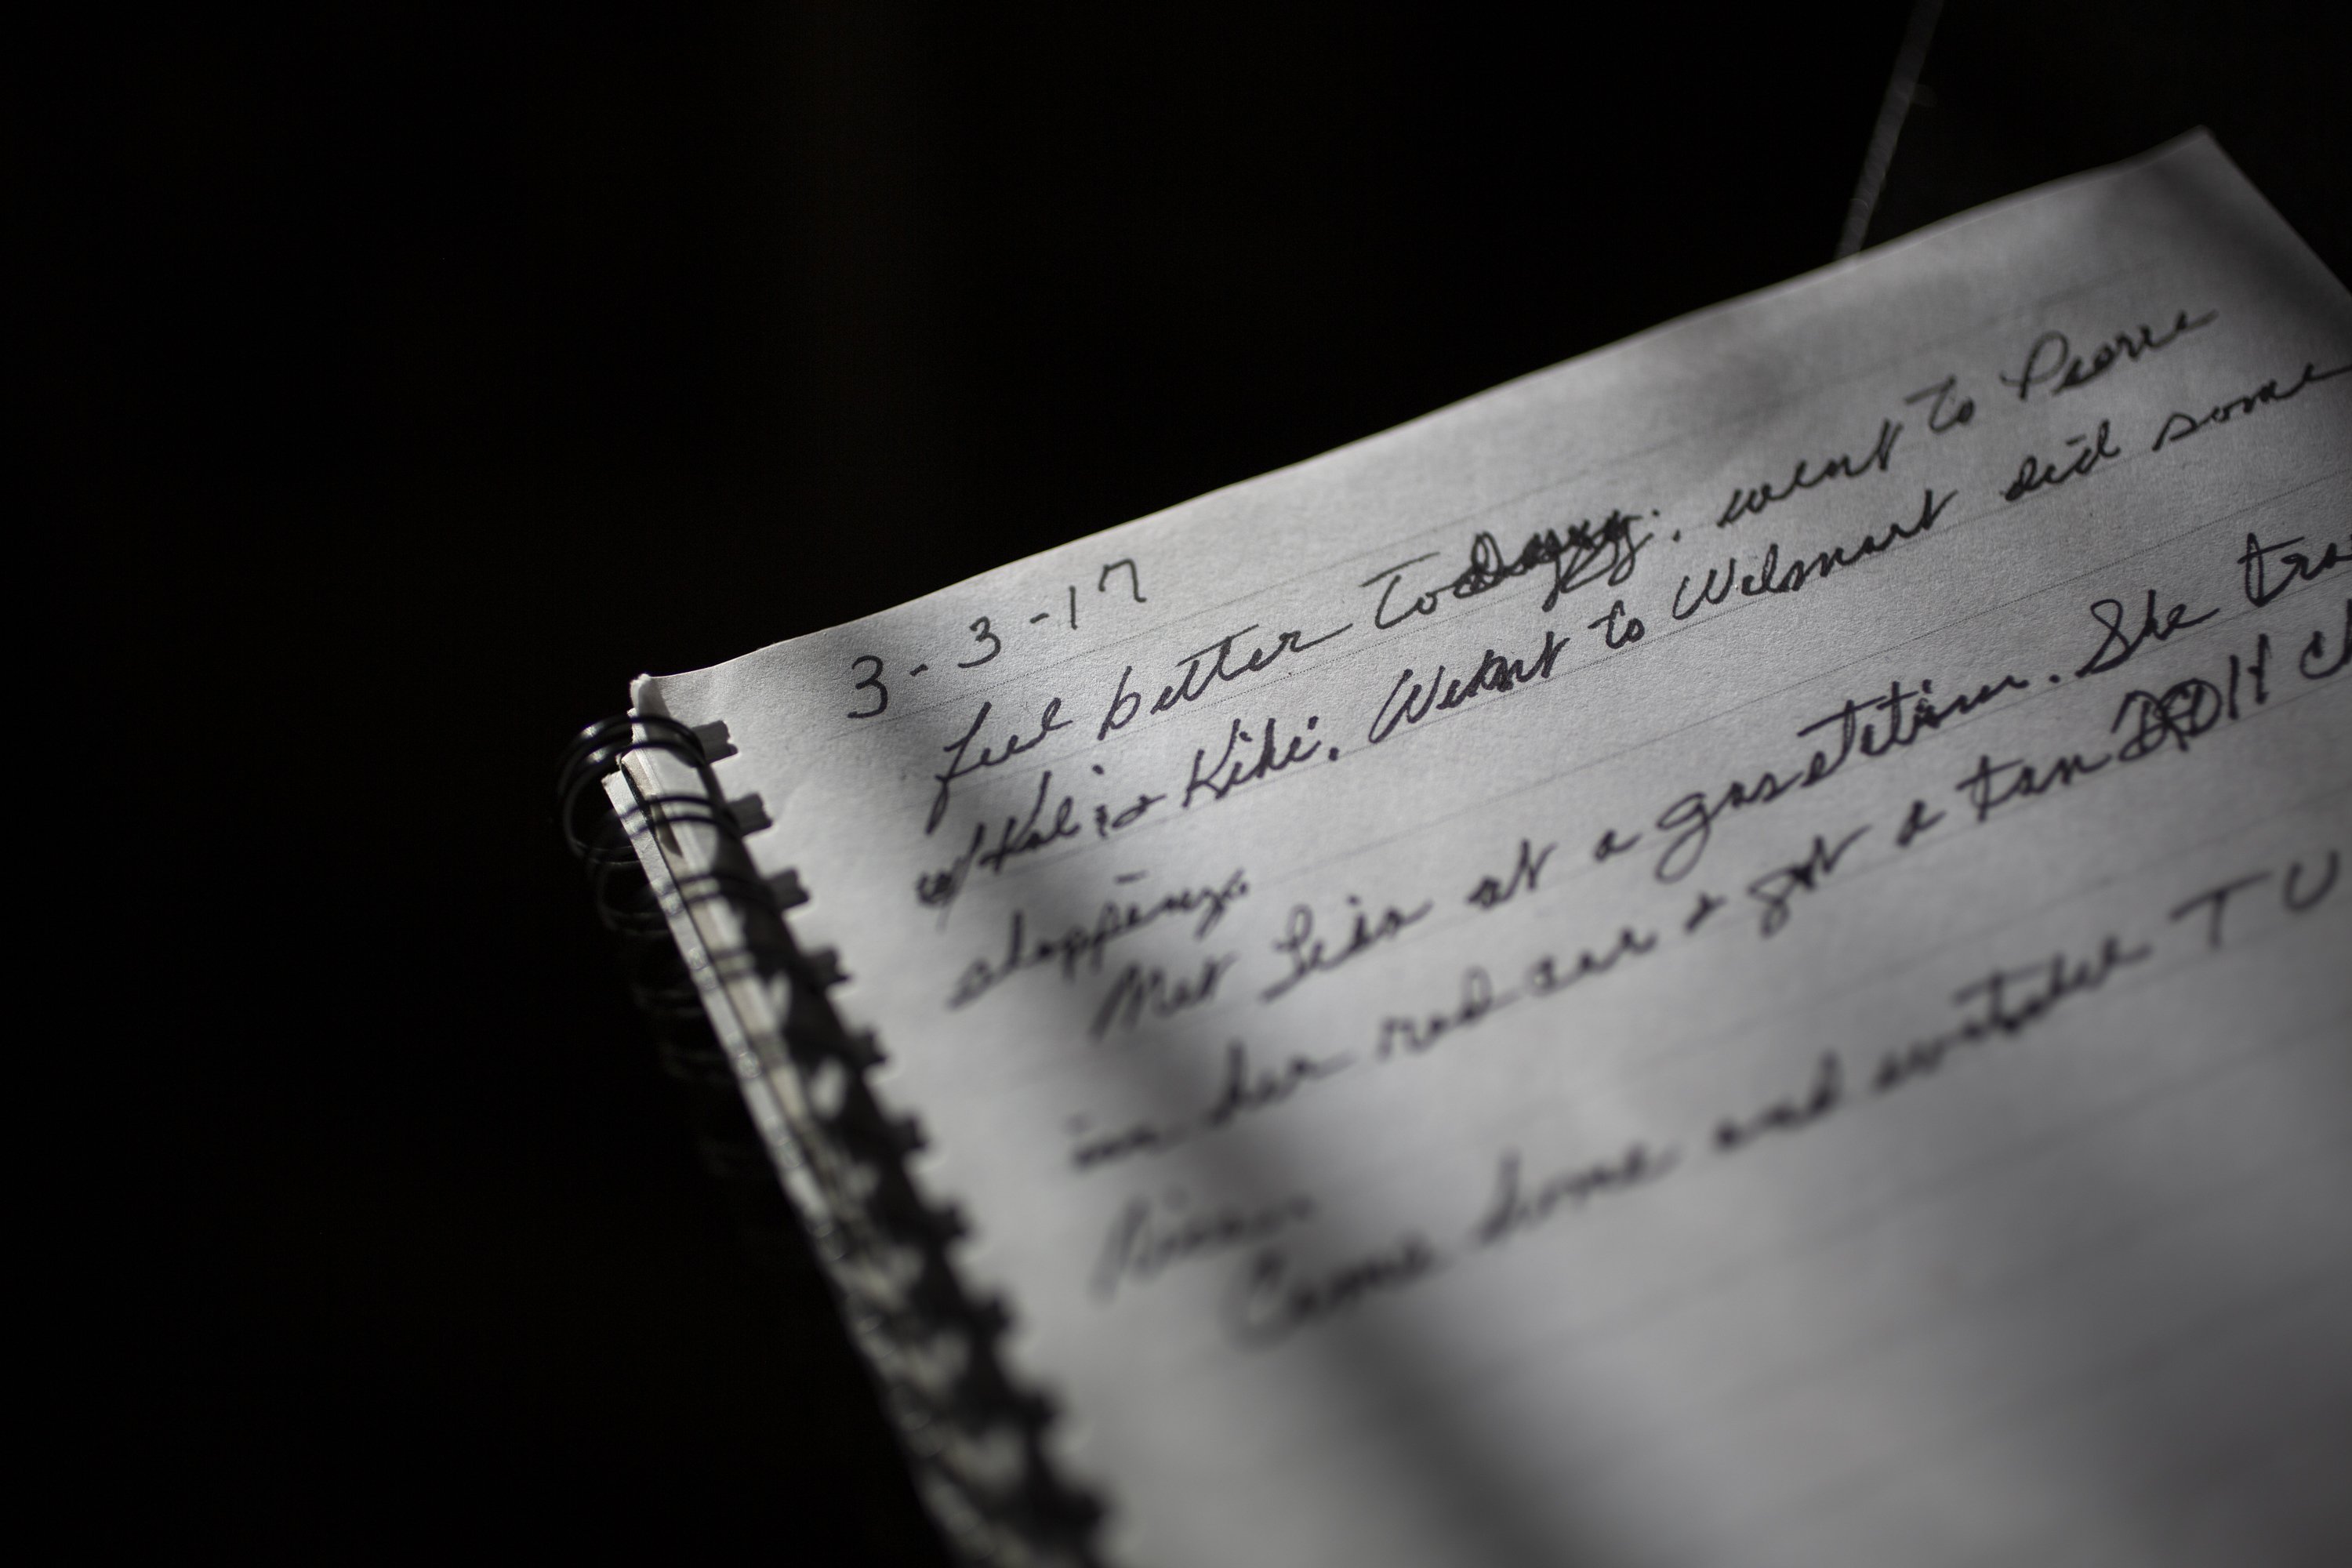 3-3-17
feel better today. went to Pierre
w/ Kali & Kiki. Went to Walmart did some
shopping.
Met Lisa at a gas station. She tra
in her red car & got a tan 2011 Ch
Came home and watched TV